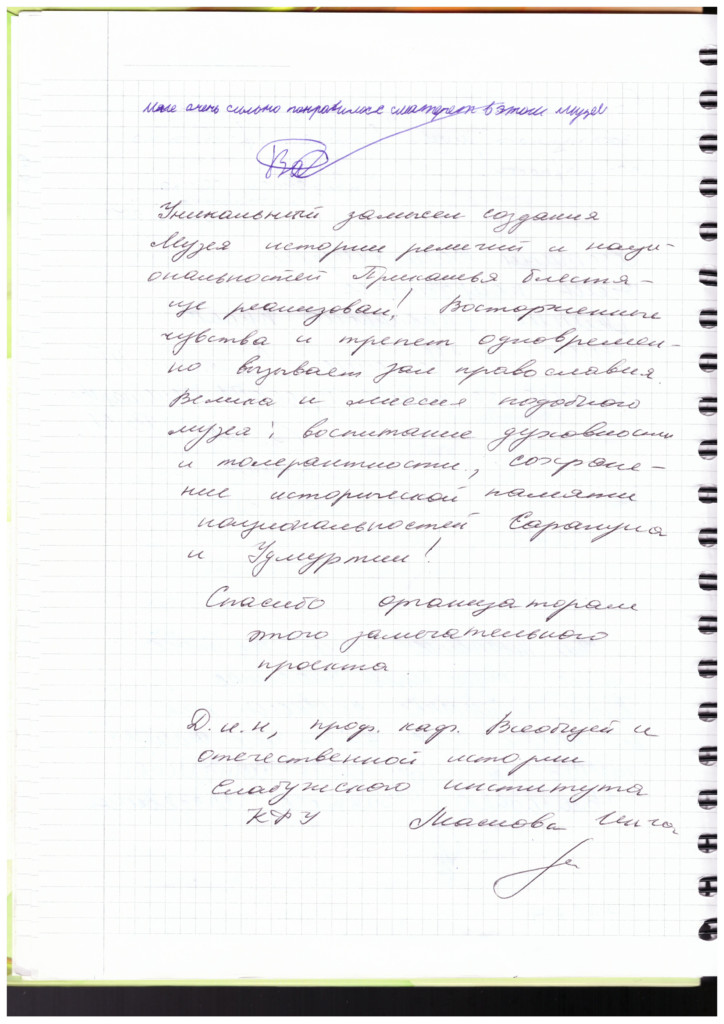 Мне очень сильно понравилось смотреть в этом музее
Уникальный замысел создания
Музея истории религий и наци-
ональностей Прикамья блестя-
ще реализован! Восторженные
чувства и трепет одновремен-
но вызывает зал православия.
Велика и миссия подобного
музея: воспитание духовности
и толерантности, сохране-
ние исторической памяти
национальностей Сарапула
и Удмуртии!
Спасибо организаторам
этого замечательного
проекта
Д.и.н, проф. каф. Всеобщей и
отечественной истории
Елабужского института
КФУ